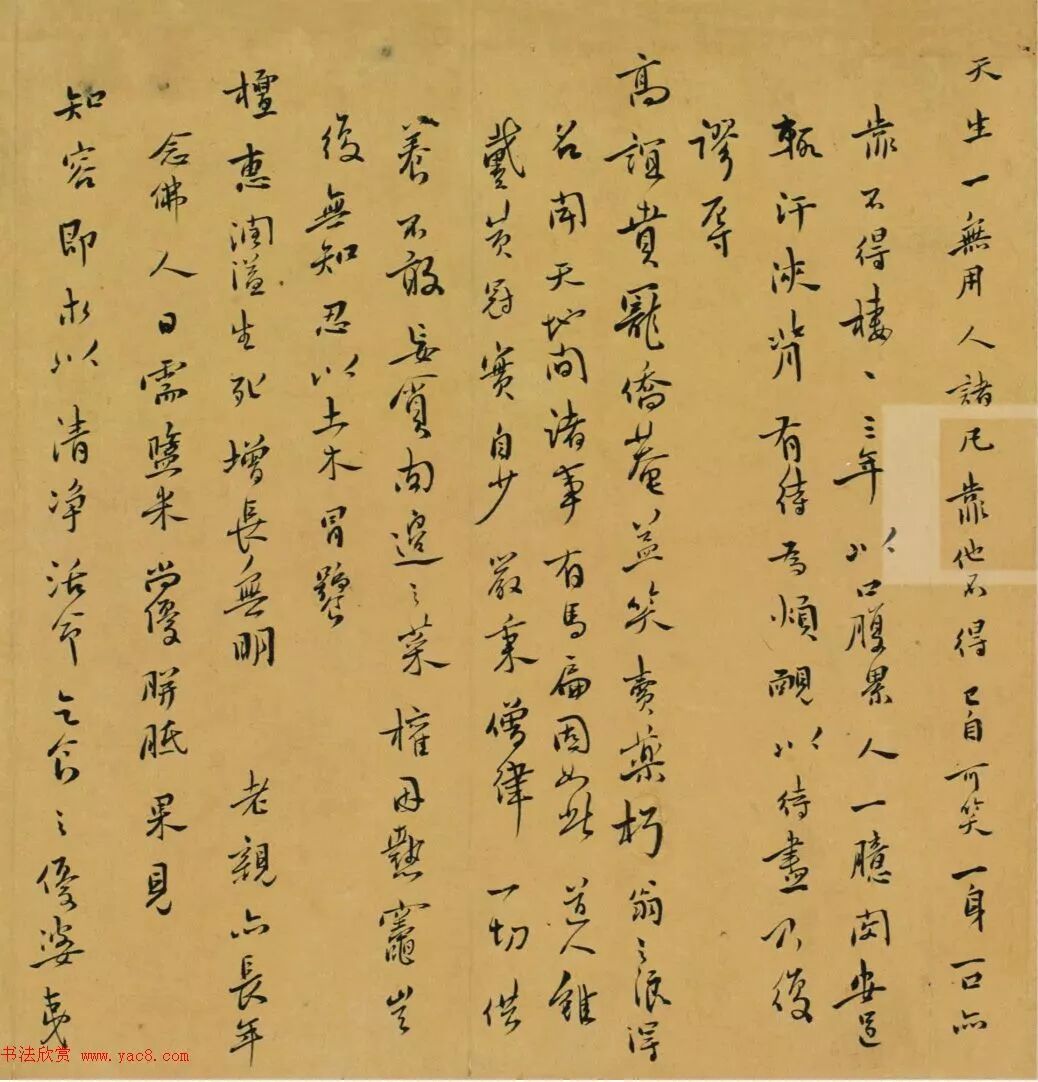 天生一無用人諸凡靠他不得已自可笑一身一口亦
靠不得棲、三年以口腹累人一臆閔安道
輒汗浹背有待為煩靦以待盡不復
謬辱
高誼貴寵僑菴益笑賣藥朽翁之浪得
名聞天地間諸事有馬扁固如此道人雖
戴黃冠實自少嚴秉僧律一切供
養不敢妄嘗間邊之菜權因熱竈豈
復無知忍以土木冒饕
檀惠潤溢生死增長無明老親亦長年
念佛人日需鹽米尚優胼胝果見
知容即求以清净活命乞食之優婆夷
书法欣赏 www.yac8.com